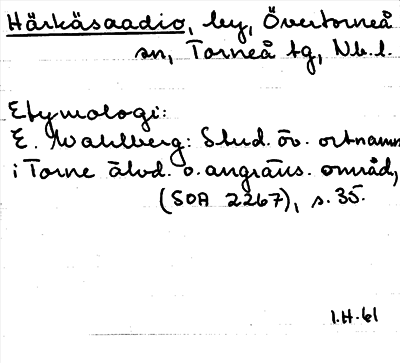 Härkäsaadio, ley, Övertorneå
sn, Torneå tg, Nb.l.
Etymologi:
E. Wahlberg: Stud. öv. ortnamn
i Torne älvd. o. angräns. områd,
(SOA 2267), s. 35.
I.H.61